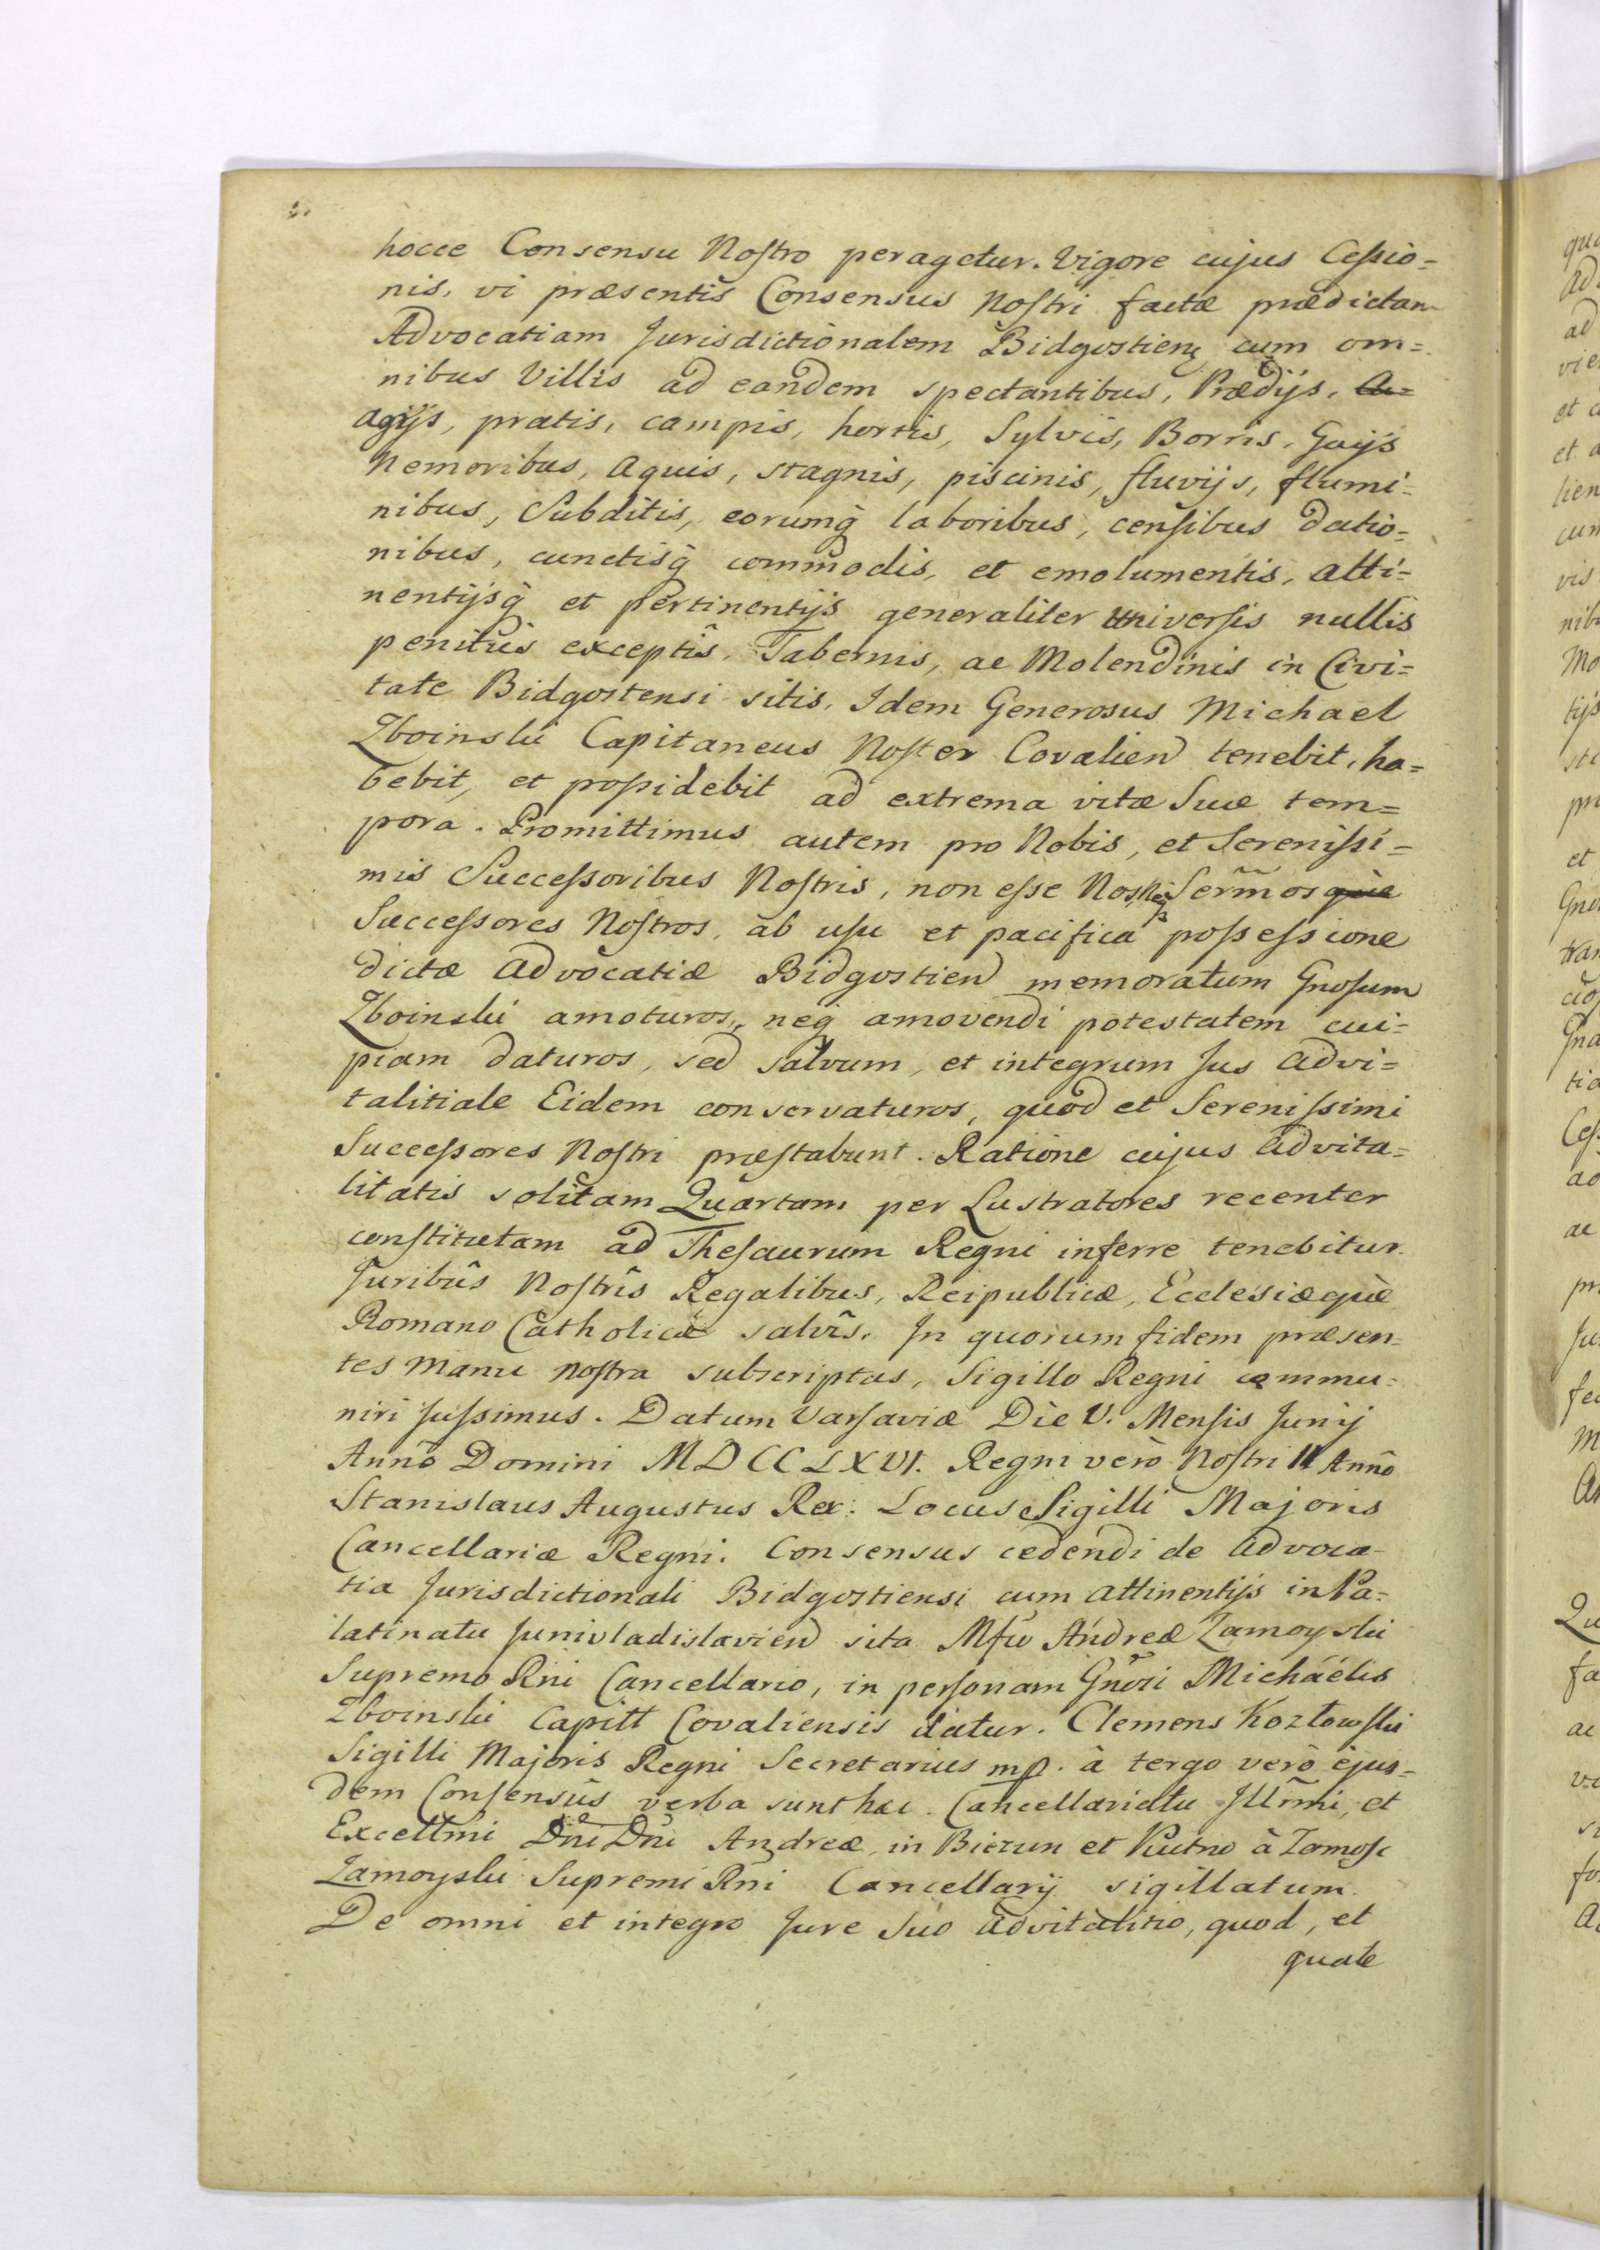 hocce Consensu Nostro peragetur. Vigore cujus Cessio=
nis, vi præsentis Consensus Nostri factæ prædictam
Advocatiam Jurisdictionalem Bidgostien cum om=
nibus Villis ad eandem spectantibus, Prædijs, A=
agijs, pratis, campis, hortis, Sylvis, Borris, Gaijs
Nemoribus, Aquis, stagnis, piscinis, fluvijs, flumi=
nibus, Subditis, eorumq̃ laboribus, censibus datio=
nibus, cunctisq̃ commodis, et emolumentis, atti=
nentijsq̃ et pertinentijs generaliter universis nullis
penitus exceptis. Tabernis, ac Molendinis in Civi=
tate Bidgostensi sitis, Idem Generosus Michael
Zboinski Capitaneus Noster Covalien tenebit, ha=
bebit, et possidebit ad extrema vitæ Suæ tem=
pora. Promittimus autem pro Nobis, et Serenissi=
mis Successoribus Nostris, non esse Nos, Neq̃ Serm̃os que
Successores Nostros, ab usu et pacifica possessione
dictæ Advocatiæ Bidgostien memoratum Gnosum
Zboinski amoturos, neq amovendi potestatem cui=
piam daturos, sed salvum, et integrum Jus Advi=
talitiale Eidem conservaturos, quod et Serenissimi
Successores Nostri præstabunt. Ratione cujus Advita=
litatis solitam Quartam per Lustratores recenter
constitutam ad Thesaurum Regni inferre tenebitur.
Juribûs Nostrîs Regalibus, Reipublicæ, Ecclesiæquè
Romano Catholicæ salvîs. In quorum fidem præsen=
tes Manu nostra subscriptas, Sigillo Regni commu=
niri jussimus. Datum Varsaviæ Die V. Mensis Junij
Anno Domini MDCCLXVI. Regni verò Nostri II Anno
Stanislaus Augustus Rex. Locus Sigilli Majoris
Cancellariæ Regni. Consensus cedendi de Advoca=
tia Jurisdictionali Bidgostiensi cum attinentijs in Pa=
latinatu Junivladislavien sita Mfco Andreæ Zamoyski
Supremo Rni Cancellario, in personam Gnosi Michaelis
Zboinski Capitt Covaliensis datur. Clemens Kozłowski
Sigilli Majoris Regni Secretarius mp. à tergo verò ejus=
dem Consensûs verba sunt hæc. Cancellariatu Illm̃i, et
Excellm̃i Dn̄i Dn̄i Andreæ, in Biezun et Kutno à Zamosc
Zamoyski Supremi Rni Cancellarij sigillatum.
De omni et integro Jure Suo Advitalitio, quod, et
quale